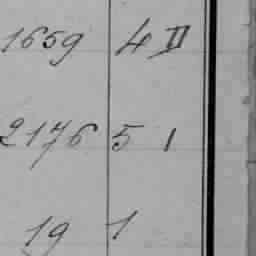 1659 4 II
2176 5 1
19 1